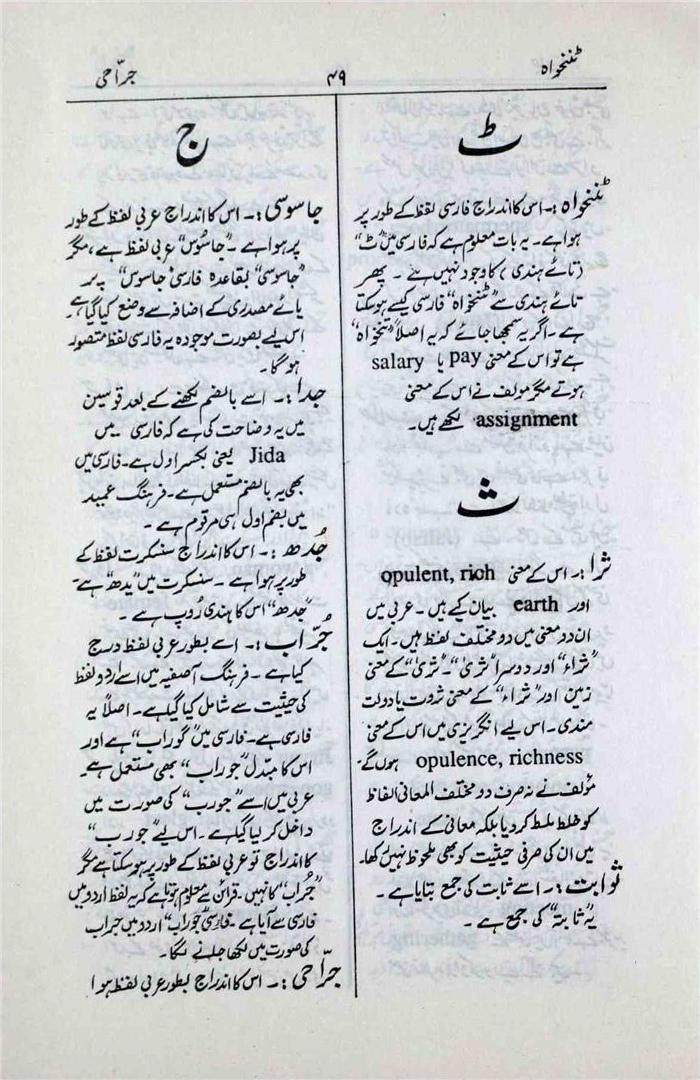 ٹنخواہ
۴۹
جرّاحی
ٹ
ٹنخواہ :۔ اس کا اندراج فارسی لفظ کے طور پر
ہوا ہے۔ یہ بات معلوم ہے کہ فارسی میں "ٹ"
(تائے ہندی) کا وجود نہیں ہے ۔ پھر
تائے ہندی سے "ٹنخواہ" فارسی کیسے ہو سکتا
ہے ۔ اگر یہ سمجھا جائے کہ یہ اصلاً "تنخواہ"
ہے تو اس کے معنی pay یا salary
ہوتے مگر مولف نے اس کے معنی
assignment لکھے ہیں۔
ث
ثرا :۔ اس کے معنی opulent, rich
اور earth بیان کیے ہیں ۔ عربی میں
ان دو معنی میں دو مختلف لفظ ہیں۔ ایک
"ثراء" اور دوسرا "ثریٰ"۔ "ثریٰ" کے معنی
زمین اور "ثراء" کے معنی ثروت یا دولت
مندی ۔ اس لیے انگریزی میں اس کے معنی
opulence, richness ہوں گے۔
مؤلف نے نہ صرف دو مختلف المعانی الفاظ
کو خلط ملط کر دیا بلکہ معانی کے اندراج
میں ان کی صرفی حیثیت کو بھی ملحوظ نہیں رکھا۔
ثوابت :۔ اسے ثابت کی جمع بتایا ہے ۔
یہ "ثابتہ" کی جمع ہے ۔
ج
جاسوسی :۔ اس کا اندراج عربی لفظ کے طور
پر ہوا ہے ۔ "جاسُوس" عربی لفظ ہے ، مگر
"جاسوسی" بقاعدہ فارسی "جاسوس" پر
یائے مصدری کے اضافہ سے وضع کیا گیا ہے۔
اس لیے بصورت موجودہ یہ فارسی لفظ متصور
ہوگا ۔
جدا :۔ اسے بالضم لکھنے کے بعد قوسین
میں یہ وضاحت کی ہے کہ فارسی میں
Jida یعنی بکسر اول ہے ۔ فارسی میں
بھی یہ بالضم مستعمل ہے۔ فرہنگ عمید
میں بضم اول ہی مرقوم ہے ۔
جُدھ :۔ اس کا اندراج سنسکرت لفظ کے
طور پر ہوا ہے ۔ سنسکرت میں "یدھ" ہے ۔
"جدھ" اس کا ہندی رُوپ ہے ۔
جُرّاب :۔ اسے بطور عربی لفظ درج
کیا ہے ۔ فرہنگ آصفیہ میں اسے اردو لفظ
کی حیثیت سے شامل کیا گیا ہے ۔ اصلاً یہ
فارسی ہے ۔ فارسی میں "گوراب" ہے اور
اس کا مبدّل "جوراب" بھی مستعمل ہے ۔
عربی میں اسے "جورب" کی صورت میں
داخل کر لیا گیا ہے ۔ اس لیے "جورب"
کا اندراج تو عربی لفظ کے طور پر ہو سکتا ہے مگر
"جُراب" کا نہیں۔ قرائن سے معلوم ہوتا ہے کہ یہ لفظ اردو میں
فارسی سے آیا ہے ۔ فارسی "جوراب" اردو میں جراب
کی صورت میں لکھا جانے لگا ۔
جرّاحی :۔ اس کا اندراج بطور عربی لفظ ہوا